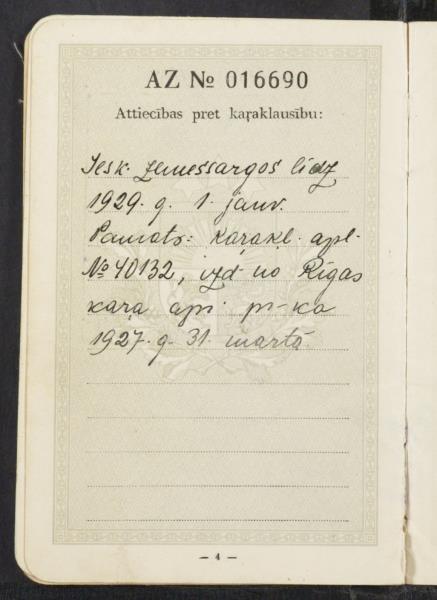 AZ № 016690
Attiecības pret kaŗaklausību:
Iesk. zemessargos līdz
1929. g. 1. janv.
Pamats: kaŗakl. apl.
№ 40132, izd. no Rīgas
kaŗa apr. pr-ka
1927. g. 31. martā
— 4 —